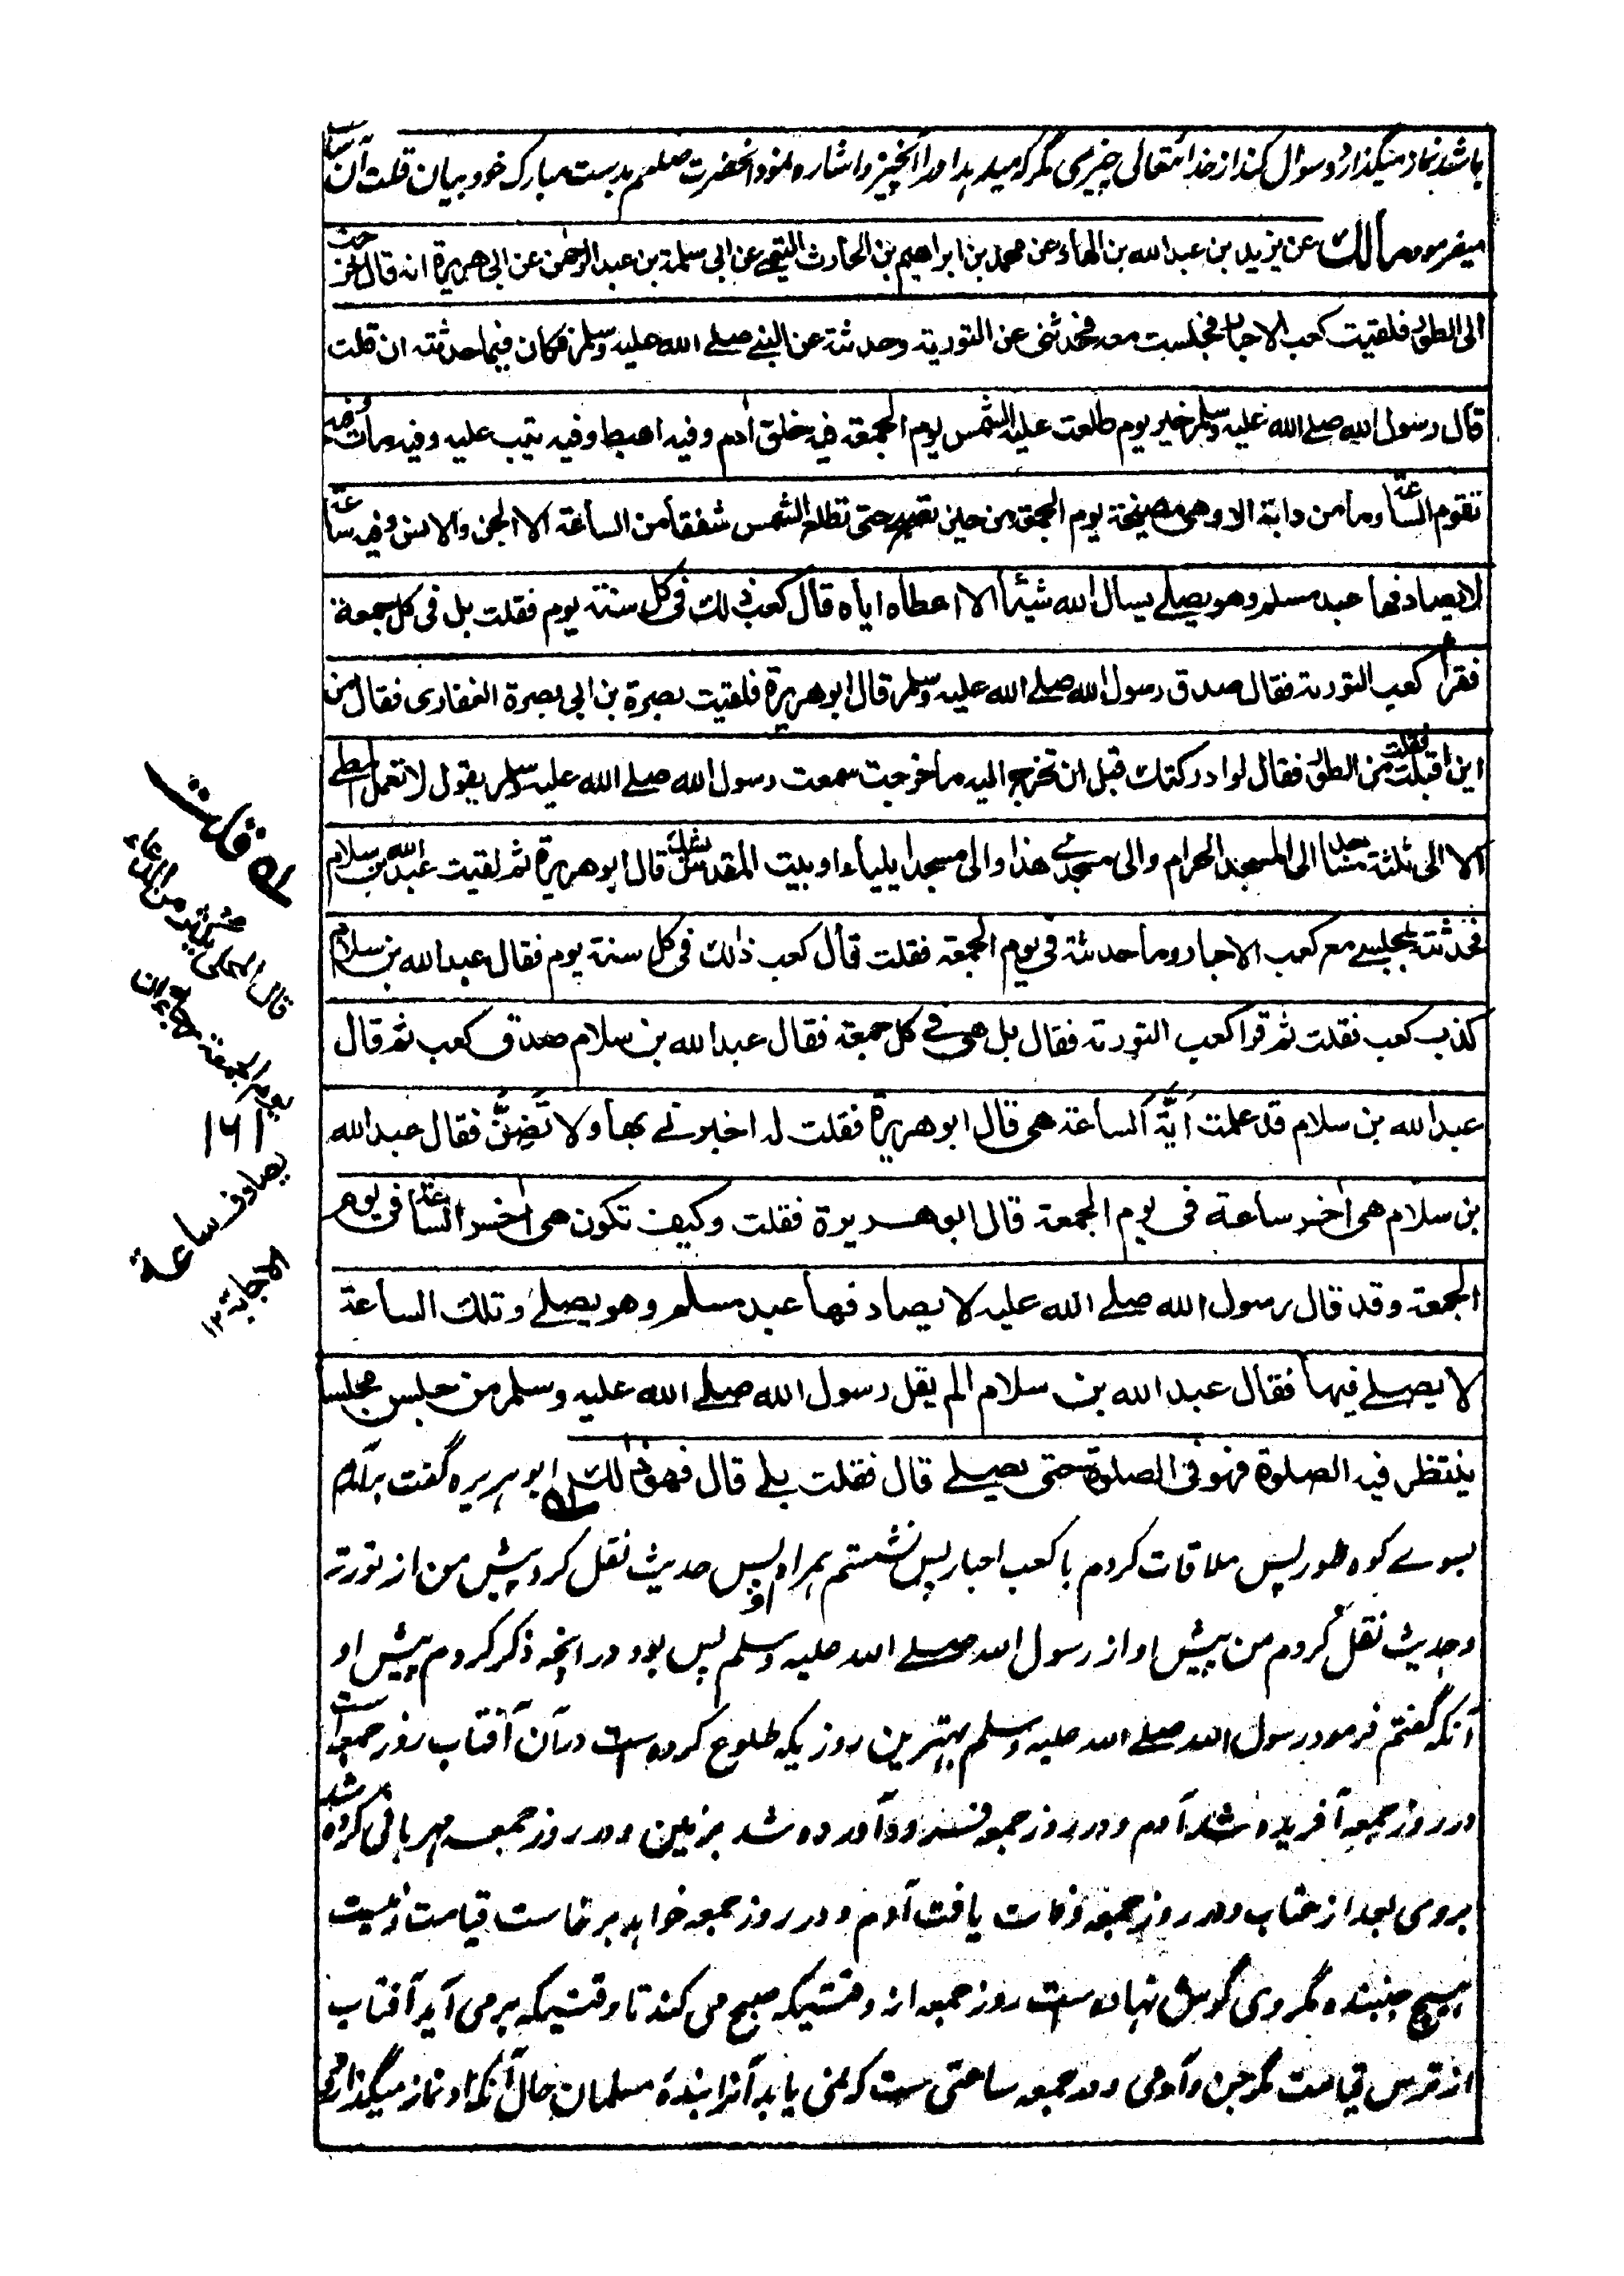 باشد نماز میگذارد و سوال کند از خدا تعالی چیزی مگر که میدهد او را آنچیز و اشاره نمود آنحضرت صلعم بدست مبارک خود بیان قلت آن ساعت
میفرمود مالك عن يزيد بن عبد الله بن الهاد عن محمد بن ابراهيم بن الحارث التيمي عن ابي سلمة بن عبد الرحمن عن ابي هريرة انه قال خرجت
الى الطور فلقيت كعب الاحبار فجلست معه فحدثنى عن التورية وحدثته عن النبي صلے الله عليه وسلم فكان فيما حدثته ان قلت
قال رسول الله صلے الله عليه وسلم خير يوم طلعت عليه الشمس يوم الجمعة فيه خلق ادم وفيه اهبط وفيه تيب عليه وفيه مات وفيه
تقوم الساعة وما من دابة الا وهى مصيخة يوم الجمعة من حين تصبح حتى تطلع الشمس شفقا من الساعة الا الجن والانس وفيه ساعة
لا يصادفها عبد مسلم وهو يصلے يسال الله شيئا الا اعطاه اياه قال كعب ذلك فى كل سنة يوم فقلت بل فى كل جمعة
فقرأ كعب التورىة فقال صدق رسول الله صلے الله عليه وسلم قال ابو هريرة فلقيت بصرة بن ابى بصرة الغفارى فقال من
اين اقبلت فقلت من الطور فقال لو ادركتك قبل ان تخرج اليه ما خرجت سمعت رسول الله صلے الله عليه وسلم يقول لا تعمل المطي
الا الى ثلثة مساجد الى المسجد الحرام والى مسجدے هذا والى مسجد ايلياء او بيت المقدس يشك قال ابو هريرة ثم لقيت عبد الله بن سلام
فحدثته بمجلسے مع كعب الاحبار وما حدثته فى يوم الجمعة فقلت قال كعب ذلك فى كل سنة يوم فقال عبد الله بن سلام
كذب كعب فقلت ثم قرا كعب التورىة فقال بل هى فے كل جمعة فقال عبد الله بن سلام صدق كعب ثم قال
عبد الله بن سلام قد علمت اَيَّةَ الساعة هى قال ابو هريرة فقلت له اخبرنے بها ولا تَضِنَّ فقال عبد الله
بن سلام هى اخر ساعة فى يوم الجمعة قال ابو هريرة فقلت وكيف تكون هى اخر الساعة فى يوم
الجمعة وقد قال رسول الله صلے الله عليه لا يصادفها عبد مسلم وهو يصلے وتلك الساعة
لا يصلے فيها فقال عبد الله بن سلام الم يقل رسول الله صلے الله عليه وسلم من جلس مجلسا
ينتظر فيه الصلوة فهو فى الصلوة حتى يصلے قال فقلت بلے قال فهو ذلك ابو ہریرہ گفت برآمدم
بسوے کوه طور پس ملاقات کردم با کعب احبار پس نشستم همراه او پس حدیث نقل کرد پیش من از تورىت
و حدیث نقل کردم من پیش او از رسول الله صلے الله علیه وسلم پس بود در آنچه ذکر کردم پیش او
آنکه گفتم فرمود رسول الله صلے الله علیه وسلم بهترین روزیکه طلوع کرده ست در آن آفتاب روز جمعه است
در روز جمعه آفریده شد آدم و در روز جمعه فرود آورده شد بزمین و در روز جمعه مهربانی کرده شد
بروی بعد از عتاب و در روز جمعه وفات یافت آدم و در روز جمعه خواهد برخاست قیامت و نیست
هیچ جنبنده مگر وی گوش نهاده ست روز جمعه از وقتیکه صبح می کند تا وقتیکه برمی آید آفتاب
از ترس قیامت مگر جن و آدمی و در جمعه ساعتی ست که نمی یابد آنرا بندهٔ مسلمان حال آنکه او نماز میگذارد
يوم الجمعة
يصادف ساعة
الاجابة ١٢